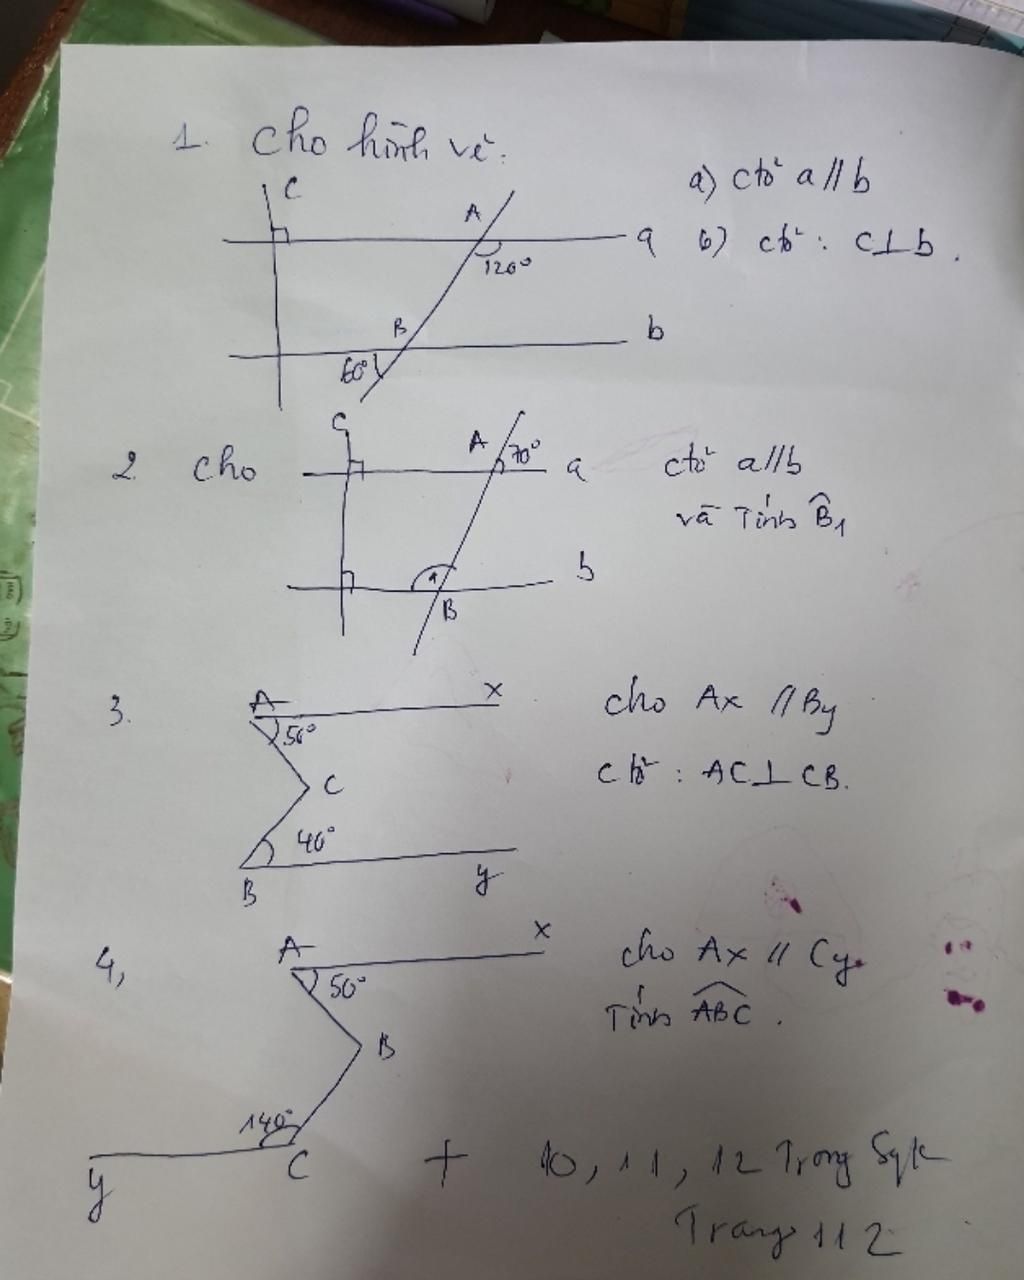 1. Cho hình vẽ:
C
A
a) ctỏ a // b
a
b) ctỏ : C⊥b.
120°
B
b
60°
C
A
70°
2. cho
a
ctỏ a//b
và Tính B̂1
b
1
B
3.
A
x
cho Ax // By
50°
C
ctỏ : AC⊥CB.
40°
B
y
4,
A
x
cho Ax // Cy.
50°
Tính ABC.
B
140°
y
C
+ 10, 11, 12 Trong Sgk
Trang 112